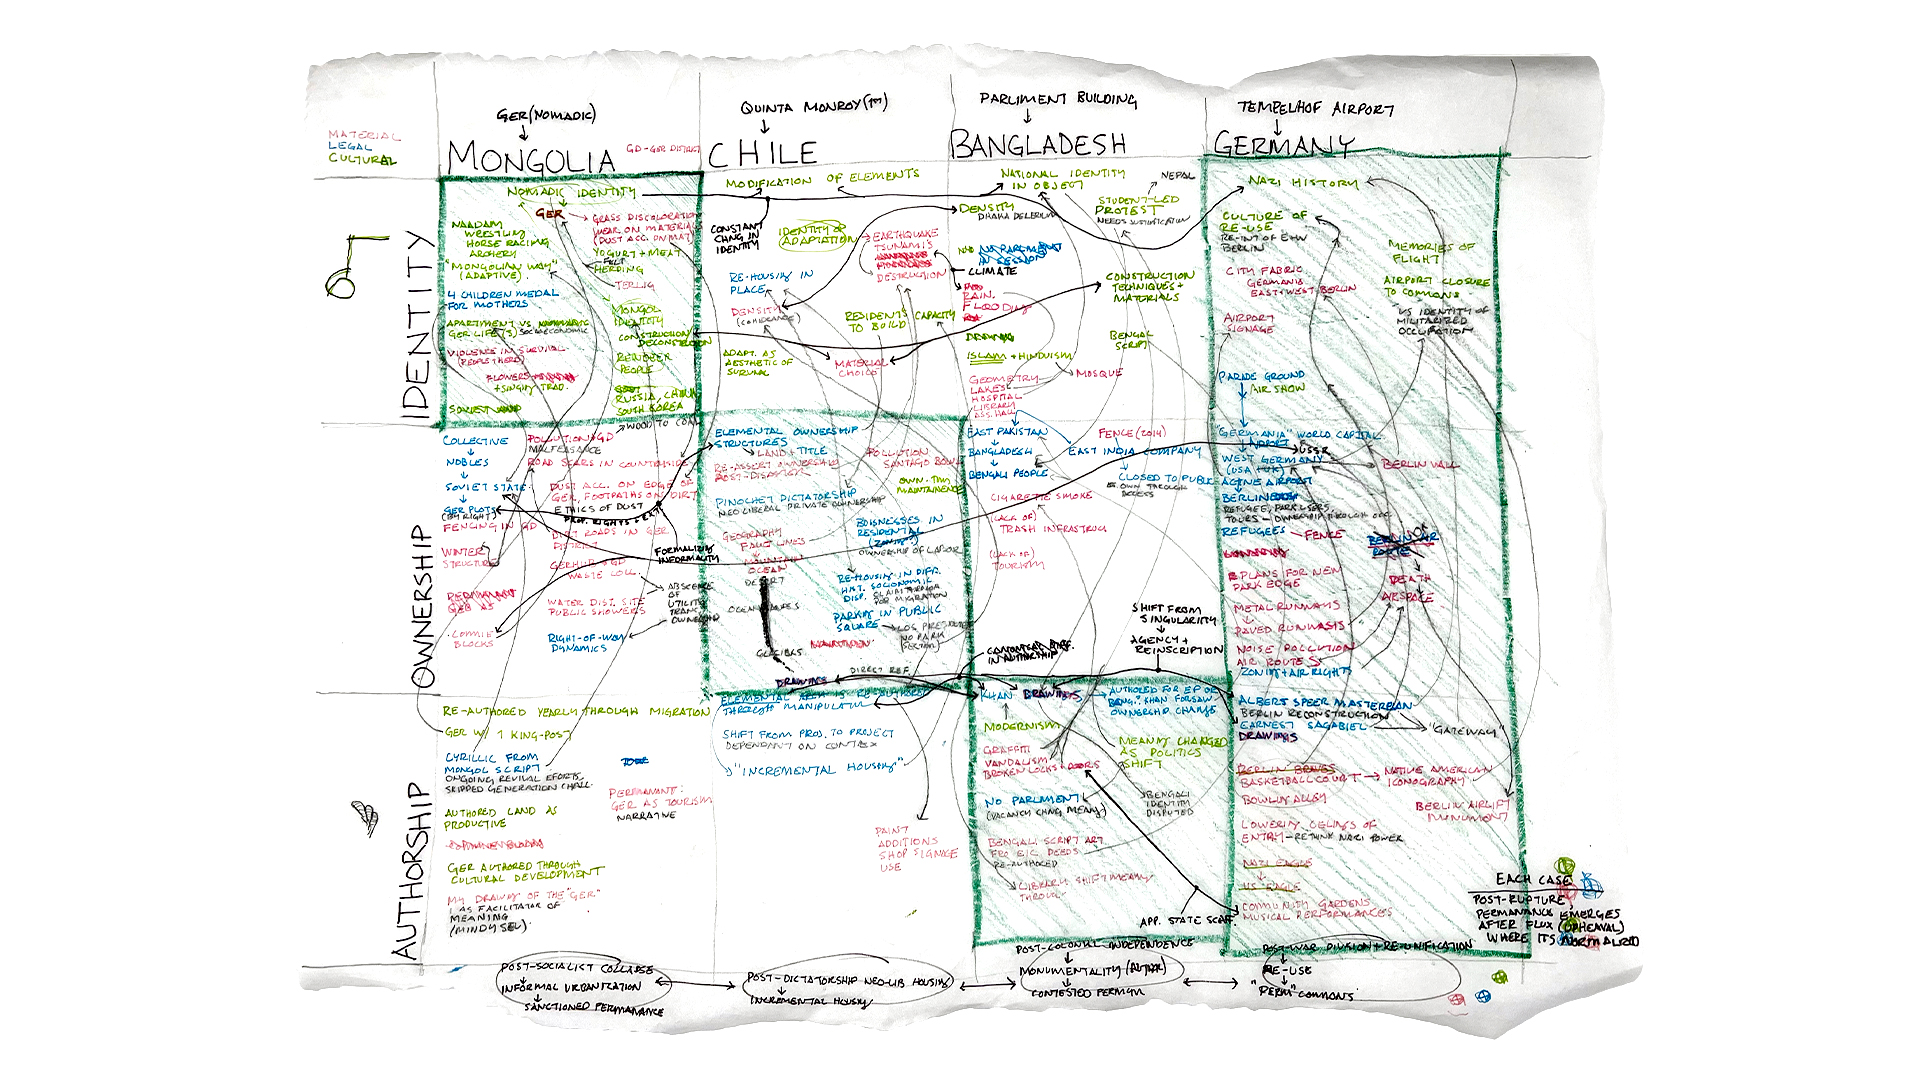 MATERIAL
LEGAL
CULTURAL
GER (NOMADIC)
MONGOLIA
GD-GER DISTRICT
QUINTA MONROY
CHILE
PARLIMENT BUILDING
BANGLADESH
TEMPELHOF AIRPORT
GERMANY
IDENTITY
NOMADIC IDENTITY
GER
NAADAM
WRESTLING
HORSE RACING
ARCHERY
"MONGOLIAN WAY"
(ADAPTIVE)
4 CHILDREN MEDAL
FOR MOTHERS
APARTMENT VS
GER LIFE(S) SOCIOECONOMIC
VIOLENCE IN SURVIVAL
FLOWERS
+ SINGING TRAD.
SOVIET
GRASS DISCOLORATION
WEAR ON MATERIAL
(DUST ACC. ON MAT)
YOGURT + MEAT
FELT
HERDING
TERLIG
MONGOL
IDENTITY
CONSTRUCTION/
DECONSTRUCTION
REINDEER
PEOPLE
RUSSIA, CHINA
SOUTH KOREA
MODIFICATION OF ELEMENTS
CONSTANT
CHNG IN
IDENTITY
IDENTITY OF
ADAPTATION
EARTHQUAKE
TSUNAMI'S
DESTRUCTION
RE-HOUSING IN
PLACE
DENSITY
RESIDENTS CAPACITY
TO BUILD
ADAPT. AS
AESTHETIC OF
SURVIVAL
MATERIAL
CHOICE
NATIONAL IDENTITY
IN OBJECT
NEPAL
DENSITY
DHAKA DELERIUM
STUDENT-LED
PROTEST
NEEDS JUSTIFICATION
NO PARLIMENT
IN SESSION
CLIMATE
RAIN.
FLOODING
CONSTRUCTION
TECHNIQUES +
MATERIALS
BENGAL
SCRIPT
ISLAM + HINDUISM
MOSQUE
GEOMETRY
LAKES
HOSPITAL
LIBRARY
ASS. HALL
NAZI HISTORY
CULTURE OF
RE-USE
RE-INT OF E+W
BERLIN
MEMORIES OF
FLIGHT
CITY FABRIC
GERMANIA
EAST+WEST BERLIN
AIRPORT CLOSURE
TO COMMONS
VS IDENTITY OF
MILITARIZED
OCCUPATION
AIRPORT
SIGNAGE
PARADE GROUND
AIR SHOW
OWNERSHIP
COLLECTIVE
NOBLES
SOVIET STATE
GER PLOTS
(BY RIGHT)
FENCING IN GD
WINTER
STRUCTURES
PERMANANT
GER AS
COMMIE
BLOCKS
POLLUTION GD
MALFEASANCE
WOOD TO COAL
ROAD SCARS IN COUNTRYSIDE
DUST ACC. ON EDGE OF
GER, FOOTPATHS ON DIRT
ETHICS OF DUST
DIRT ROADS IN GER
DISTRICT
GERHUB + GD
WASTE COLL.
WATER DIST. SITE
PUBLIC SHOWERS
RIGHT-OF-WAY
DYNAMICS
FORMALIZING
INFORMALITY
ABSCENSE
OF
UTILITY
TRANS.
OWNERSHIP
ELEMENTAL OWNERSHIP
STRUCTURES
LAND + TITLE
RE-ASSERT OWNERSHIP
POST-DISASTER
POLLUTION
SANTAGO BOWL
OWN. THRU
MAINTENENCE
PINOCHET DICTATORSHIP
NEO LIBERAL PRIVATE OWNERSHIP
GEOGRAPHY
FAULT LINES
MOUNTAIN
OCEAN
DESERT
GLACIERS
BUISNESSES IN
RESIDENTIAL
OWNERSHIP OF LABOR
RE-HOUSING IN DIFF.
HIST. SOCIONOMIC
DISP. CLAIM THROUGH
FOR MIGRATION
PARKING IN PUBLIC
SQUARE
NO PARK
DIRECT REF.
DRAWINGS
EAST PAKISTAN
BANGLADESH
BENGALI PEOPLE
FENCE (2014)
EAST INDIA COMPANY
CLOSED TO PUBLIC
OWN THROUGH
ACCESS
CIGARETTE SMOKE
(LACK OF)
TRASH INFRASTRUC
(LACK OF)
TOURISM
SHIFT FROM
SINGULARITY
AGENCY +
REINSCRIPTION
IN AUTHORSHIP
"GERMANIA" WORLD CAPITAL
USSR
WEST GERMANY
(USA/UK)
ACTIVE AIRPORT
BERLIN
REFUGEE, PARK USERS,
TOURS - OWNERSHIP THROUGH OCC.
REFUGEES - FENCE
BERLIN WALL
BERLIN AIR
ROUTE
DEATH
AIRSPACE
PLANS FOR NEW
PARK EDGE
METAL RUNWAYS
PAVED RUNWAYS
NOISE POLLUTION
AIR ROUTES
ZONING + AIR RIGHTS
AUTHORSHIP
RE-AUTHORED YEARLY THROUGH MIGRATION
GER W/ 1 KING-POST
CYRILLIC FROM
MONGOL SCRIPT
ONGOING REVIVAL EFFORTS,
SKIPPED GENERATION CHALL.
AUTHORED LAND AS
PRODUCTIVE
GER AUTHORED THROUGH
CULTURAL DEVELOPMENT
MY DRAWING OF THE "GER"
I AS FACILITATOR OF
MEANING
(MINDYSEL)
PERMANANT:
GER AS TOURISM
NARRATIVE
THROUGH MANIPULATION
SHIFT FROM PROJ. TO PROJECT
DEPENDANT ON CONTEX
"INCREMENTAL HOUSING"
PAINT
ADDITIONS
SHOP SIGNAGE
USE
KHAN
DRAWINGS
AUTHORED FOR EP OR
BANG. KHAN FORSAW
OWNERSHIP CHANGE
MODERNISM
GRAFFITI
VANDALISM
BROKEN LOCKS + DOORS
MEANING CHANGED
AS POLITICS
SHIFT
NO PARLIMENT
(VACANCY CHNG MEANG)
BENGALI
IDENTITY
DISPUTED
BENGALI SCRIPT ART
FRO E.I.C. DEEDS
RE-AUTHORED
LIBRARY SHIFT MEANING
THROUGH
APP. STATE SCAFF.
ALBERT SPEER MASTERPLAN
BERLIN RECONSTRUCTION
EARNEST SAGABIEL
DRAWINGS
"GATEWAY"
BERLIN BRAVES
BASKETBALL COURT
NATIVE AMERICAN
ICONOGRAPHY
BOWLING ALLEY
BERLIN AIRLIFT
MONUMENT
LOWERING CEILINGS OF
ENTRY - RETHINK NAZI POWER
NAZI EAGLE
US EAGLE
COMMUNITY GARDENS
MUSICAL PERFORMANCES
EACH CASE
POST-RUPTURE,
PERMANANCE EMERGES
AFTER FLUX (UPHEAVAL)
WHERE ITS NORMALIZED
POST-SOCIALIST COLLAPSE
INFORMAL URBANIZATION
SANCTIONED PERMANANCE
POST-DICTATORSHIP NEO-LIB HOUSING
INCREMENTAL HOUSING
POST-COLONIAL INDEPENDENCE
MONUMENTALITY
CONTESTED PERMAN
POST-WAR DIVISION + RE-UNIFICATION
RE-USE
"PERM" COMMONS